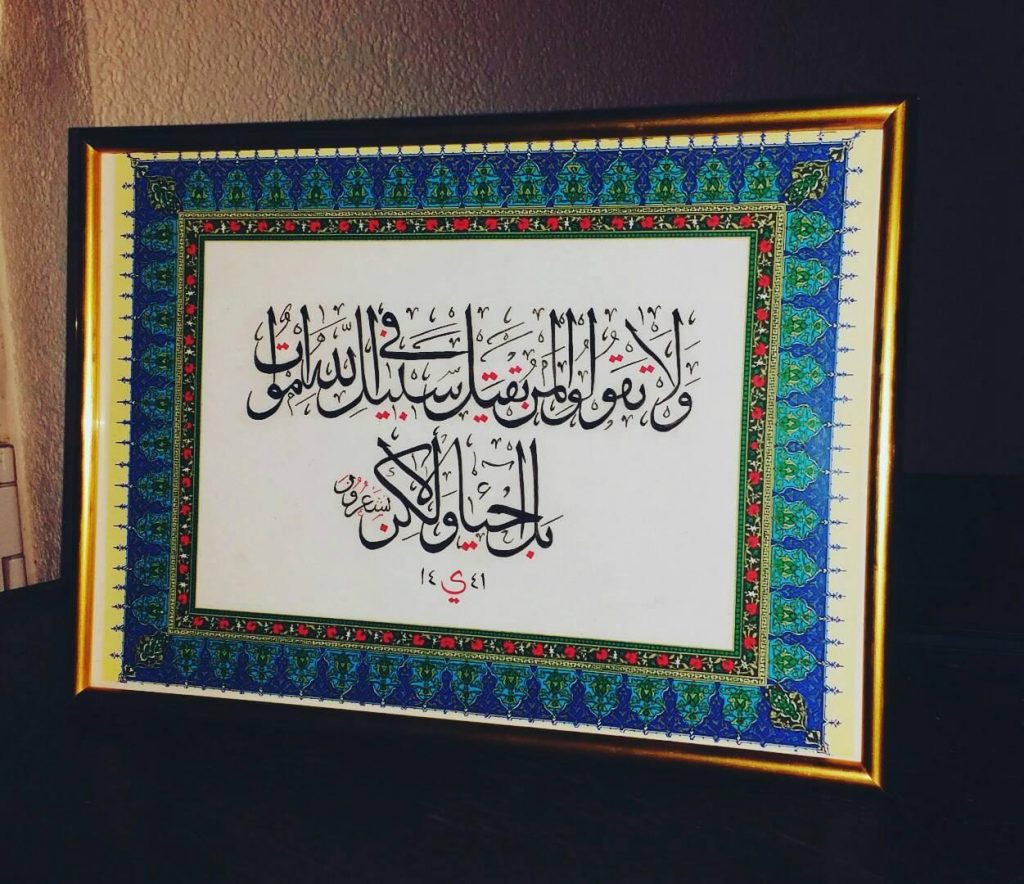 ولا تقولوا لمن يقتل في سبيل الله اموات
بل احياء ولكن لا تشعرون
١٤ ي ٤١